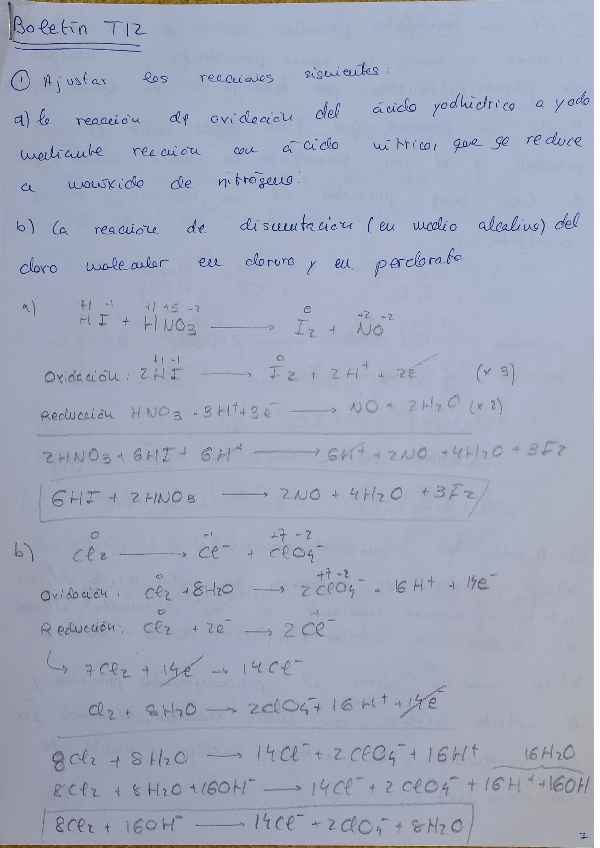 Boletín T12
① Ajustar las reacciones siguientes:
a) la reacción de oxidación del ácido yodhídrico a yodo
mediante reacción con ácido nítrico, que se reduce
a monóxido de nitrógeno:
b) La reacción de dismutación (en medio alcalino) del
cloro molecular en cloruro y en perclorato
a) +1 -1 +1 +5 -2 0 +2 -2
HI + HNO3 → I2 + NO
+1 -1 0
Oxidación: 2HI → I2 + 2H+ + 2e- (x 3)
Reducción HNO3 + 3H+ + 3e- → NO + 2H2O (x 2)
2HNO3 + 6HI + 6H+ → 6H+ + 2NO + 4H2O + 3I2
6HI + 2HNO3 → 2NO + 4H2O + 3I2
0 -1 +7 -2
b) Cl2 → Cl- + ClO4-
0 +7 -2
Oxidación: Cl2 + 8H2O → 2ClO4- + 16H+ + 14e-
0 -1
Reducción: Cl2 + 2e- → 2Cl-
↳ 7Cl2 + 14e- → 14Cl-
Cl2 + 8H2O → 2ClO4- + 16H+ + 14e-
8Cl2 + 8H2O → 14Cl- + 2ClO4- + 16H+ 16H2O
8Cl2 + 8H2O + 16OH- → 14Cl- + 2ClO4- + 16H+ + 16OH
8Cl2 + 16OH- → 14Cl- + 2ClO4- + 8H2O